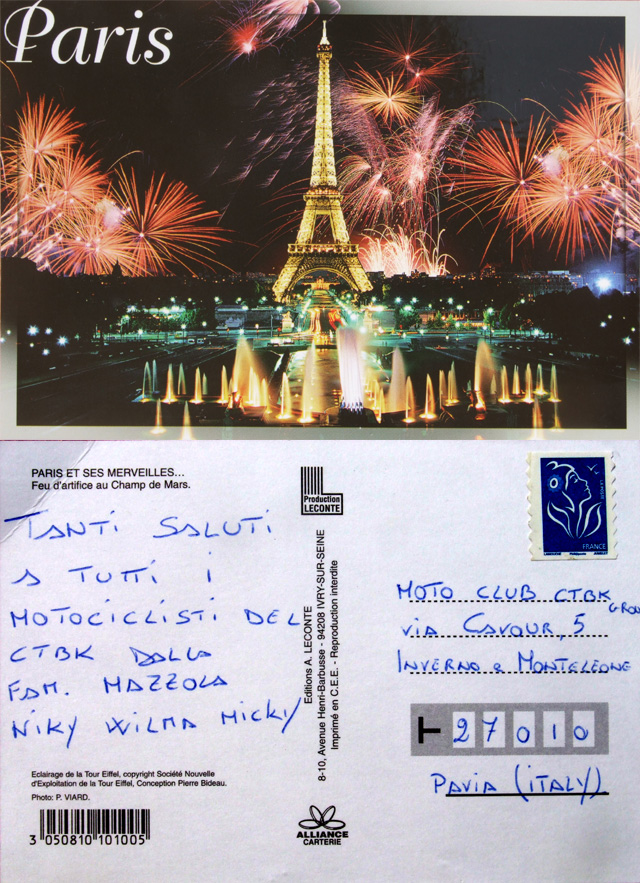 Paris
PARIS ET SES MERVEILLES...
Feu d'artifice au Champ de Mars.
TANTI SALUTI
A TUTTI I
MOTOCICLISTI DEL
CTBK DALLA
FAM. MAZZOLA
NIKY WILMA MICKY
Eclairage de la Tour Eiffel, copyright Société Nouvelle
d'Exploitation de la Tour Eiffel, Conception Pierre Bideau.
Photo: P. VIARD.
3 050810 101005
Production
LECONTE
Editions A. LECONTE
8-10, Avenue Henri-Barbusse - 94208 IVRY-SUR-SEINE
Imprimé en C.E.E. - Reproduction interdite
ALLIANCE
CARTERIE
FRANCE
MOTO CLUB CTBK
VIA CAVOUR, 5
INVERNO e MONTELEONE
T 27010
PAVIA (ITALY)